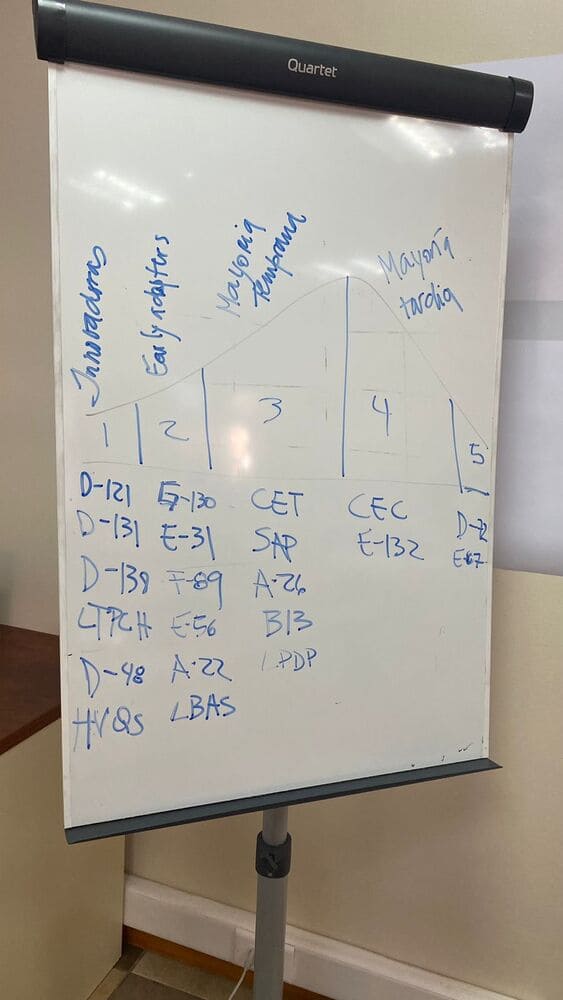 Quartet
Innovadoras
Early adapters
Mayoria
Temprana
Mayoría
tardia
1
2
3
4
5
D-121
D-131
D-139
LTPCH
D-48
HVQs
E-31
F-89
E-56
A-22
LBAS
CET
SAP
A-26
B13
CEC
E-132